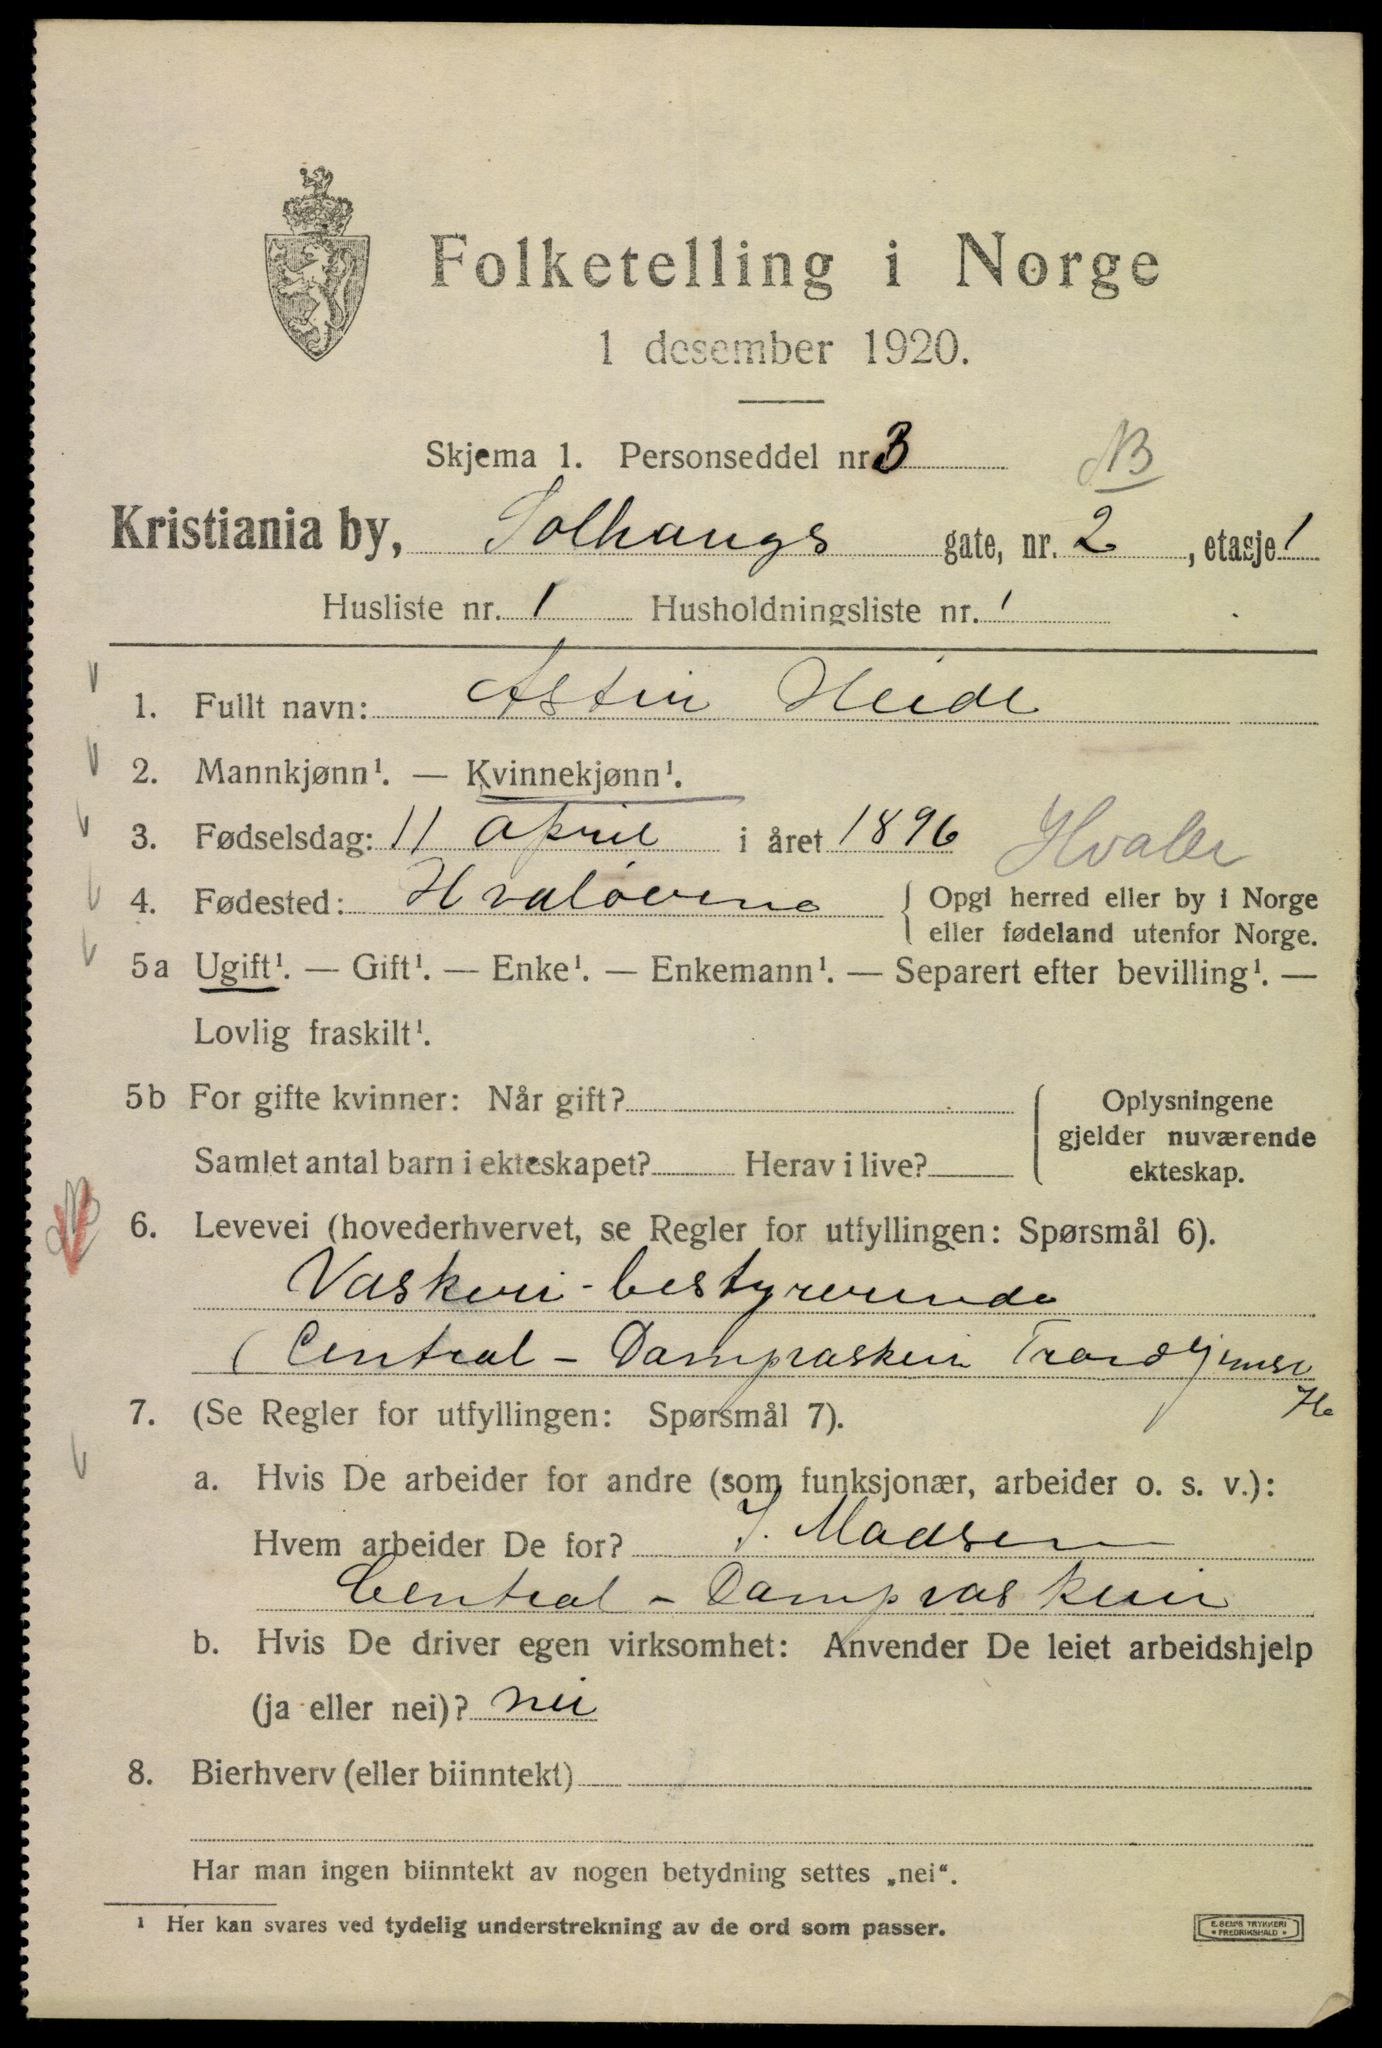 Folketelling i Norge
1 desember 1920.
Skjema 1. Personseddel nr. 3
NB
Kristiania by, Solhaugs gate, nr. 2, etasje 1
Husliste nr. 1 Husholdningsliste nr. 1
1. Fullt navn: Astin Heide
2. Mannkjønn¹. — Kvinnekjønn¹.
3. Fødselsdag: 11 april i året 1896 Hvaler
4. Fødested: Hvaløerne { Opgi herred eller by i Norge
eller fødeland utenfor Norge.
5a Ugift¹. — Gift¹. — Enke¹. — Enkemann¹. — Separert efter bevilling¹. —
Lovlig fraskilt¹.
5b For gifte kvinner: Når gift?
Samlet antal barn i ekteskapet? Herav i live?
Oplysningene
gjelder nuværende
ekteskap.
NB
6. Levevei (hovederhvervet, se Regler for utfyllingen: Spørsmål 6).
Vaskeri-bestyrerinde
(Central-Dampvaskeri
7. (Se Regler for utfyllingen: Spørsmål 7).
a. Hvis De arbeider for andre (som funksjonær, arbeider o. s. v.):
Hvem arbeider De for? J. Madsen
Central-Dampvaskeri
b. Hvis De driver egen virksomhet: Anvender De leiet arbeidshjelp
(ja eller nei)? nei
8. Bierhverv (eller biinntekt)
Har man ingen biinntekt av nogen betydning settes „nei“.
¹ Her kan svares ved tydelig understrekning av de ord som passer.
E. SEM'S TRYKKERI
* FREDRIKSHALD *